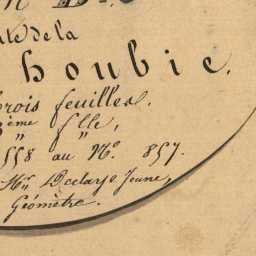 te de la
houbie.
trois feuilles.
ème " flle,
558 au N.° 857.
Mr. Delarje Jeune,
Géomètre.